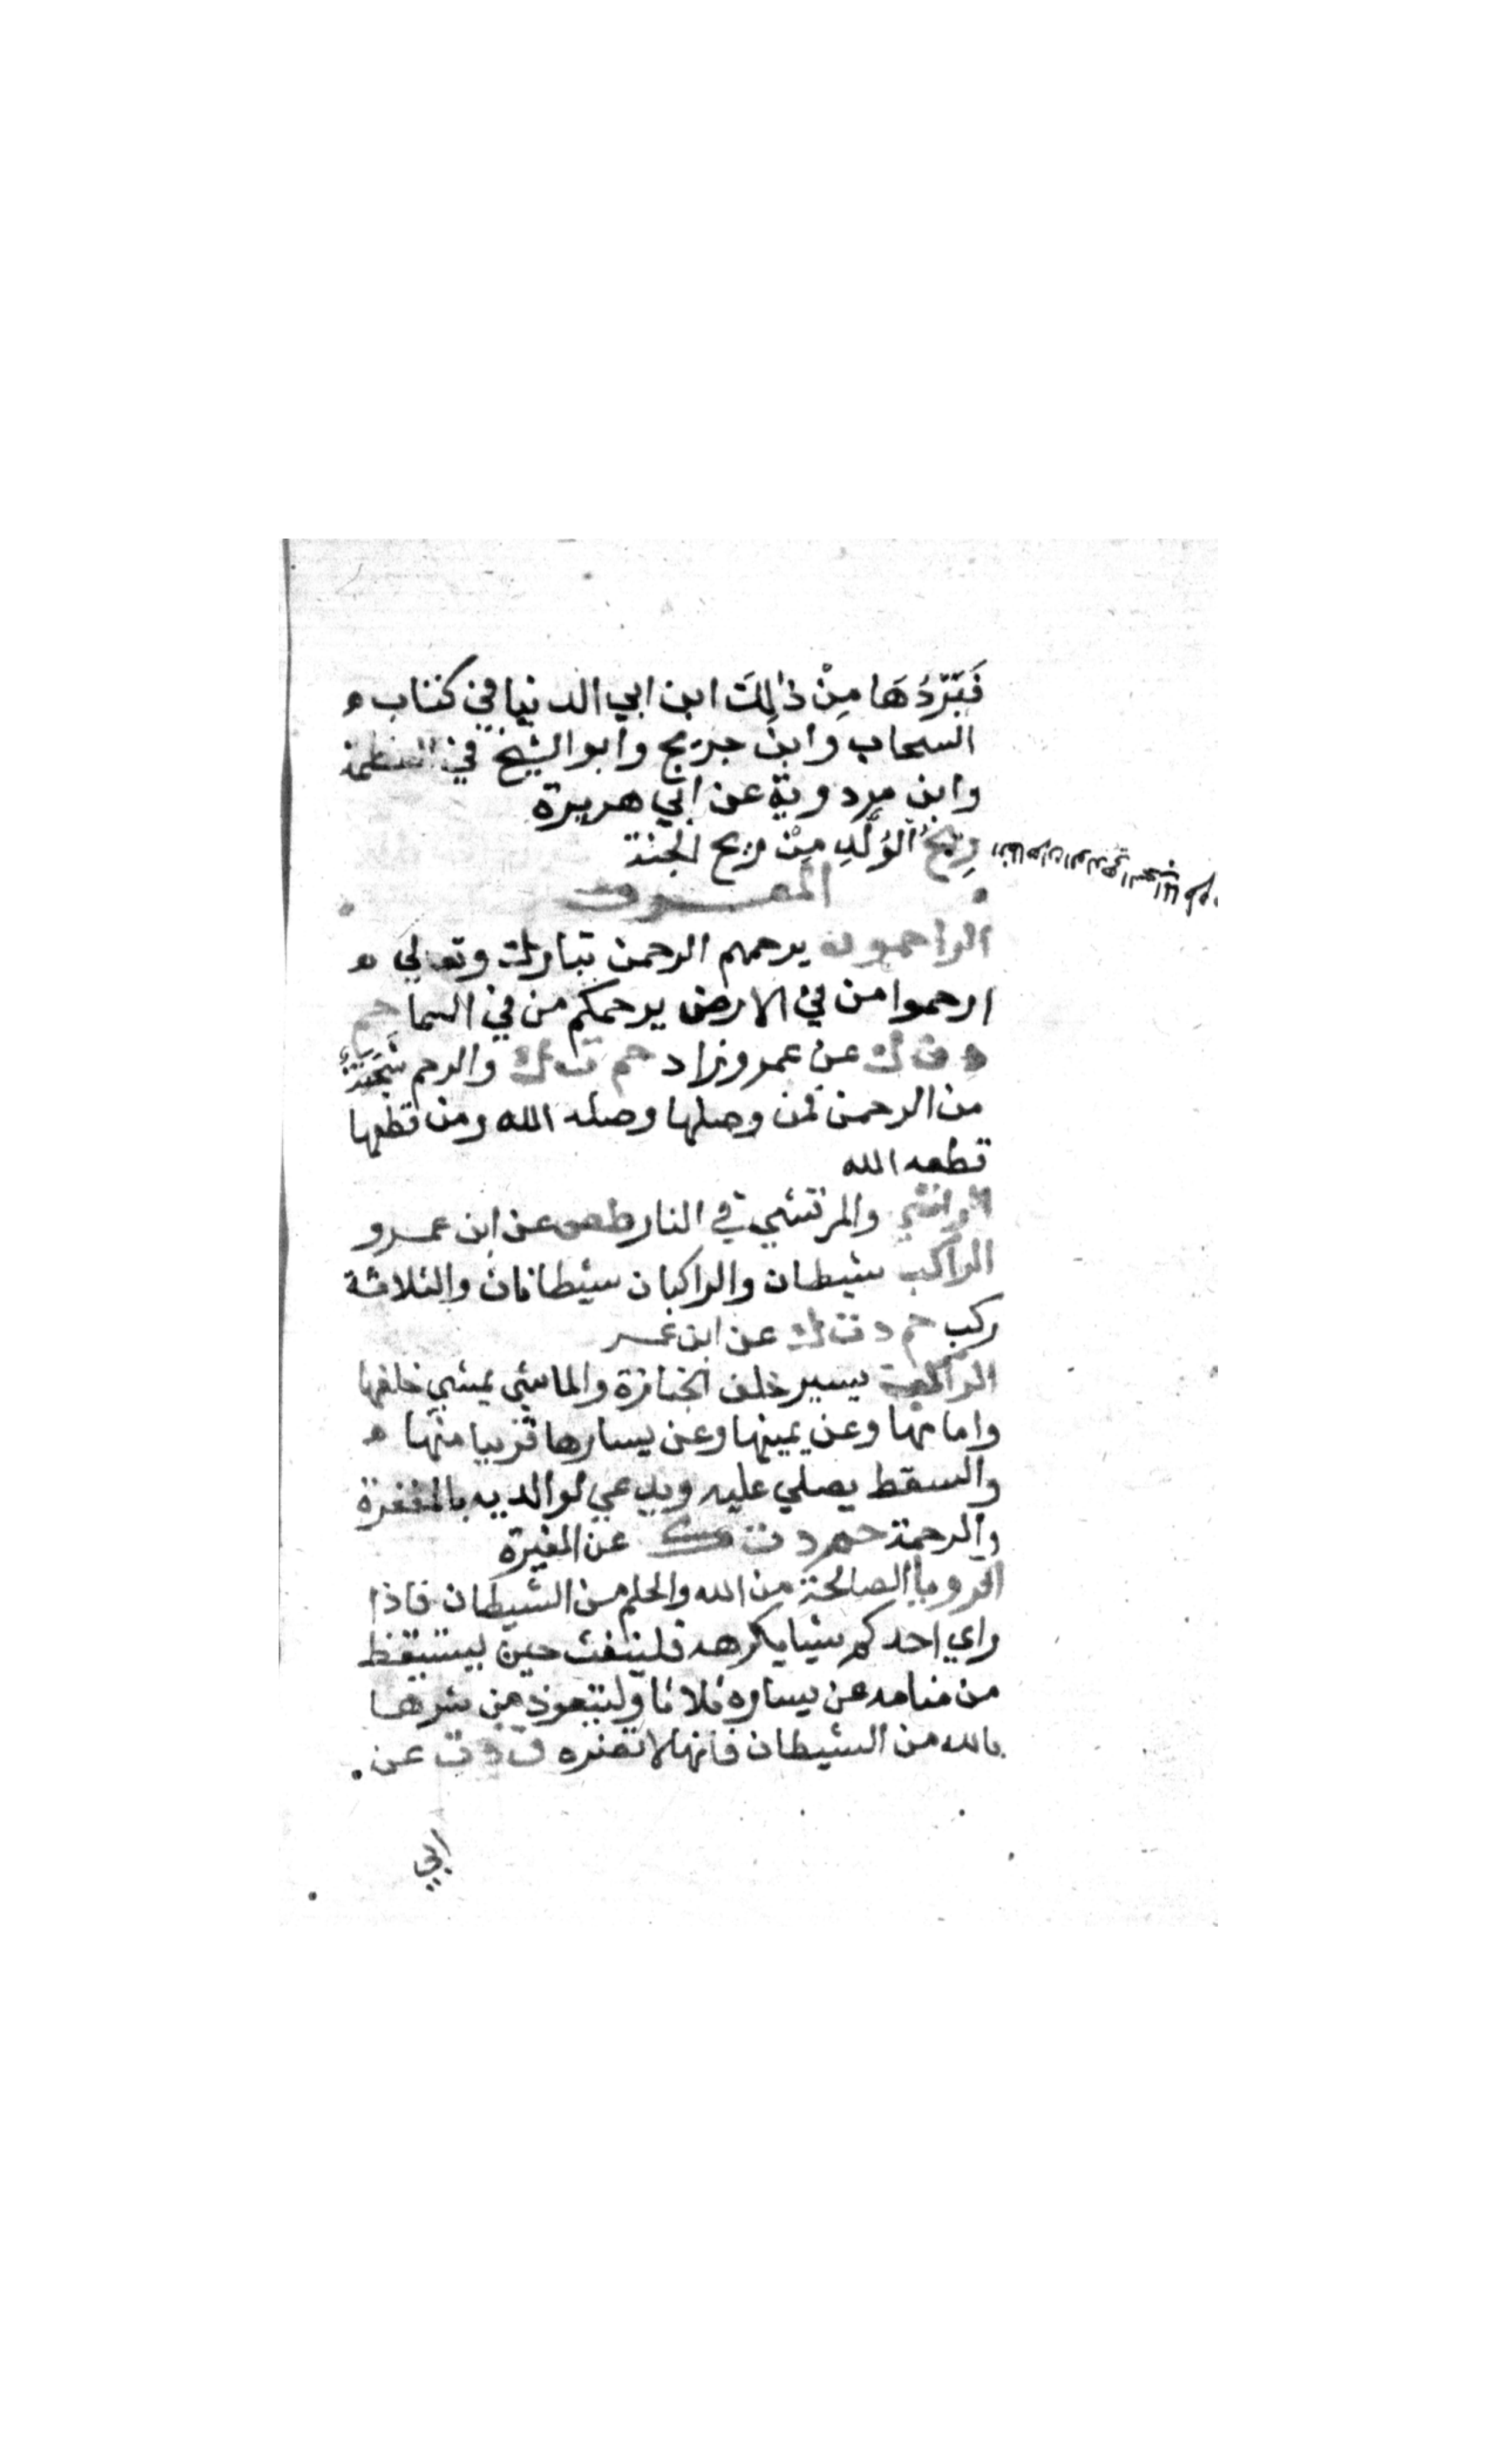 فَتَبَرُّدُهَا مِنْ ذٰلِكَ ابن ابي الدنيا في كتاب
السحاب وابن جريج وابو الشيخ في العظمة
وابن مردوية عن ابي هريرة
رِيحُ الوَلَدِ مِنْ ريح الجنة
المعرف
الراحمون يرحمهم الرحمن تبارك وتعالي
ارحموا من في الارض يرحمكم من في السما حم
د ت ك عن عمرو زاد حم ت ك والرحم شجنة
من الرحمن فمن وصلها وصله الله ومن قطعها
قطعه الله
الراشي والمرتشي في النار طص عن ابن عمرو
الراكب شيطان والراكبان شيطانان والثلاثة
ركب حم د ت ك عن ابن عمر
الراكب يسير خلف الجنازة والماشي يمشي خلفها
وامامها وعن يمينها وعن يسارها قريبا منها
والسقط يصلي عليه ويدعي لوالديه بالمغفرة
والرحمة حم د ت ك عن المغيرة
الرويا الصالحة من الله والحلم من الشيطان فاذا
راي احدكم شيا يكرهه فلينفث حين يستيقظ
من منامه عن يساره ثلاثا وليتعوذ من شرها
بالله من الشيطان فانها لا تضره ق د ت عن
ابي